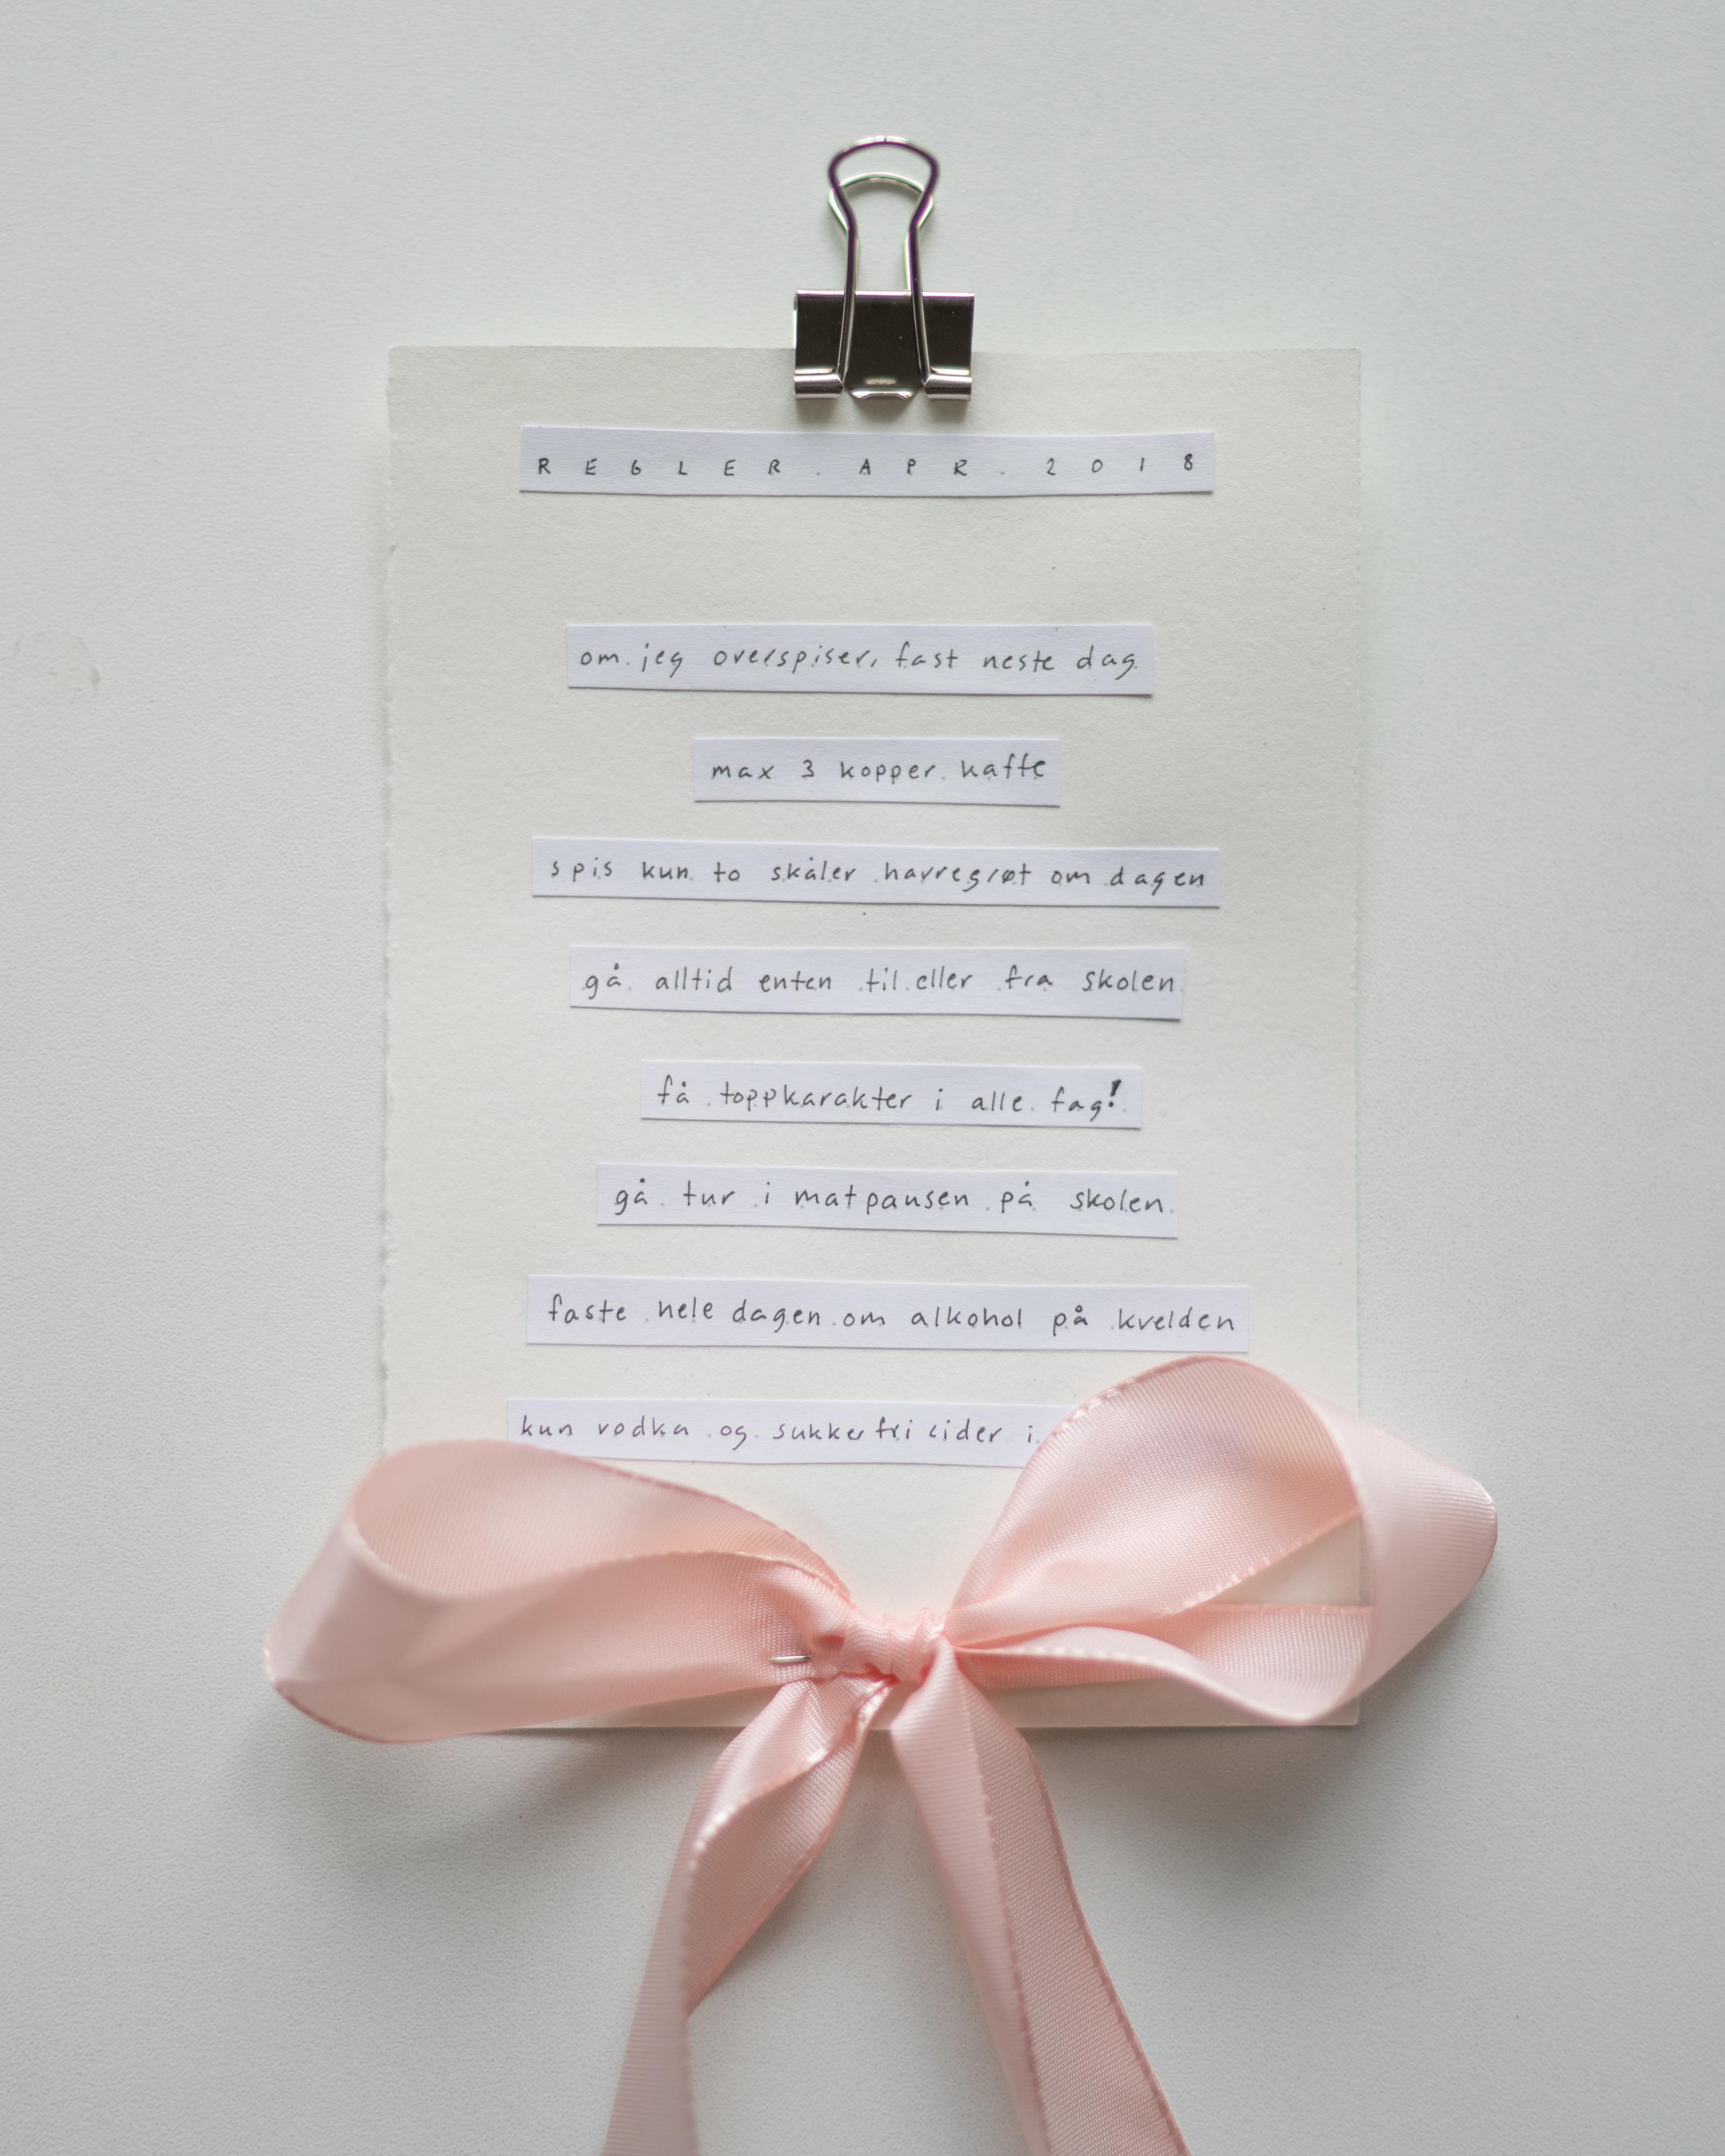 REGLER. APR. 2018
om jeg overspiser, fast neste dag
max 3 kopper kaffe
spis kun to skåler havregrøt om dagen
gå alltid enten til eller fra skolen
få toppkarakter i alle fag!
gå tur i matpausen på skolen
faste hele dagen om alkohol på kvelden
kun vodka og sukkerfri cider i